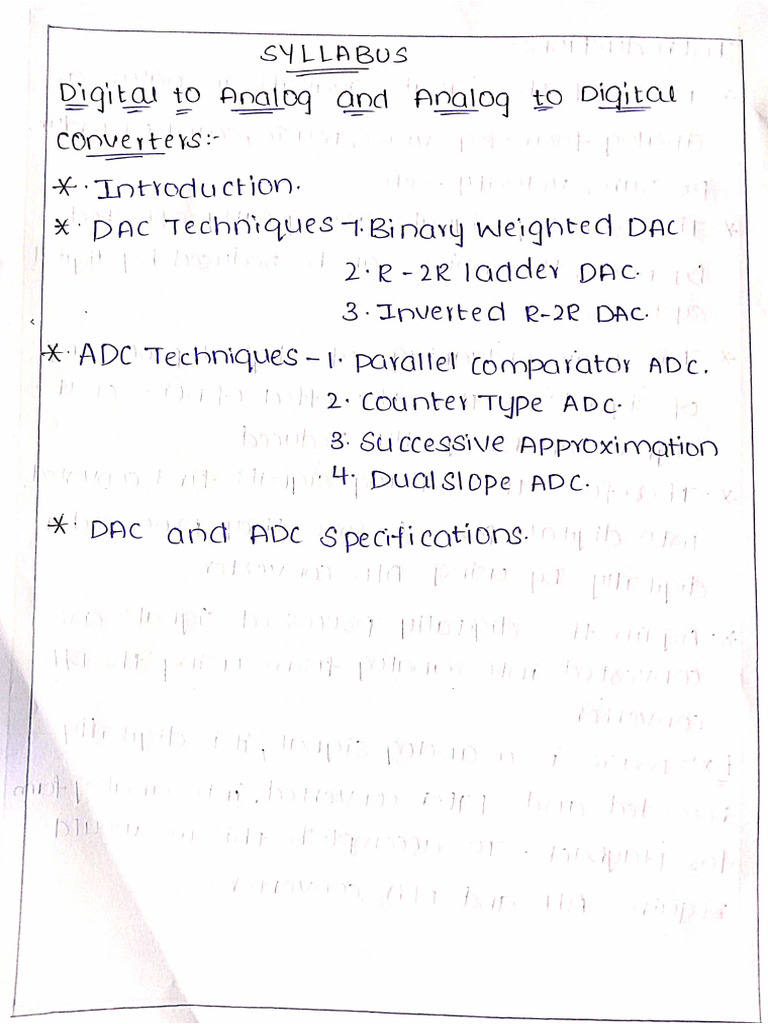 SYLLABUS
Digital to Analog and Analog to Digital
converters:-
*. Introduction.
*. DAC Techniques - 1. Binary Weighted DAC
2. R-2R ladder DAC.
3. Inverted R-2R DAC.
*. ADC Techniques - 1. parallel comparator ADC.
2. Counter Type ADC.
3. Successive Approximation
4. Dual Slope ADC.
*. DAC and ADC Specifications.